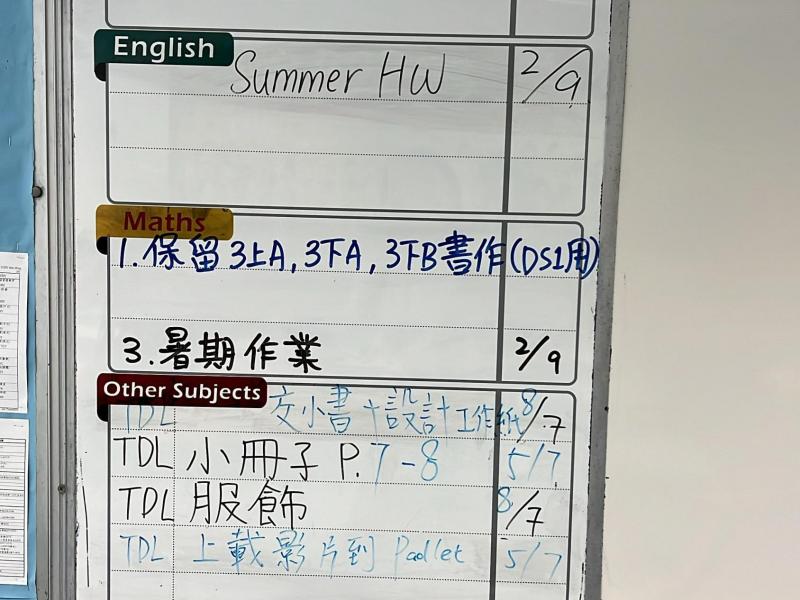 English
Summer HW 2/9
Maths
1. 保留3上A, 3下A, 3下B書作(DS1用)
3. 暑期作業 2/9
Other Subjects
TDL 交小書+設計工作紙 8/7
TDL 小冊子 P.7-8 5/7
TDL 服飾 8/7
TDL 上載影片到 Padlet 5/7